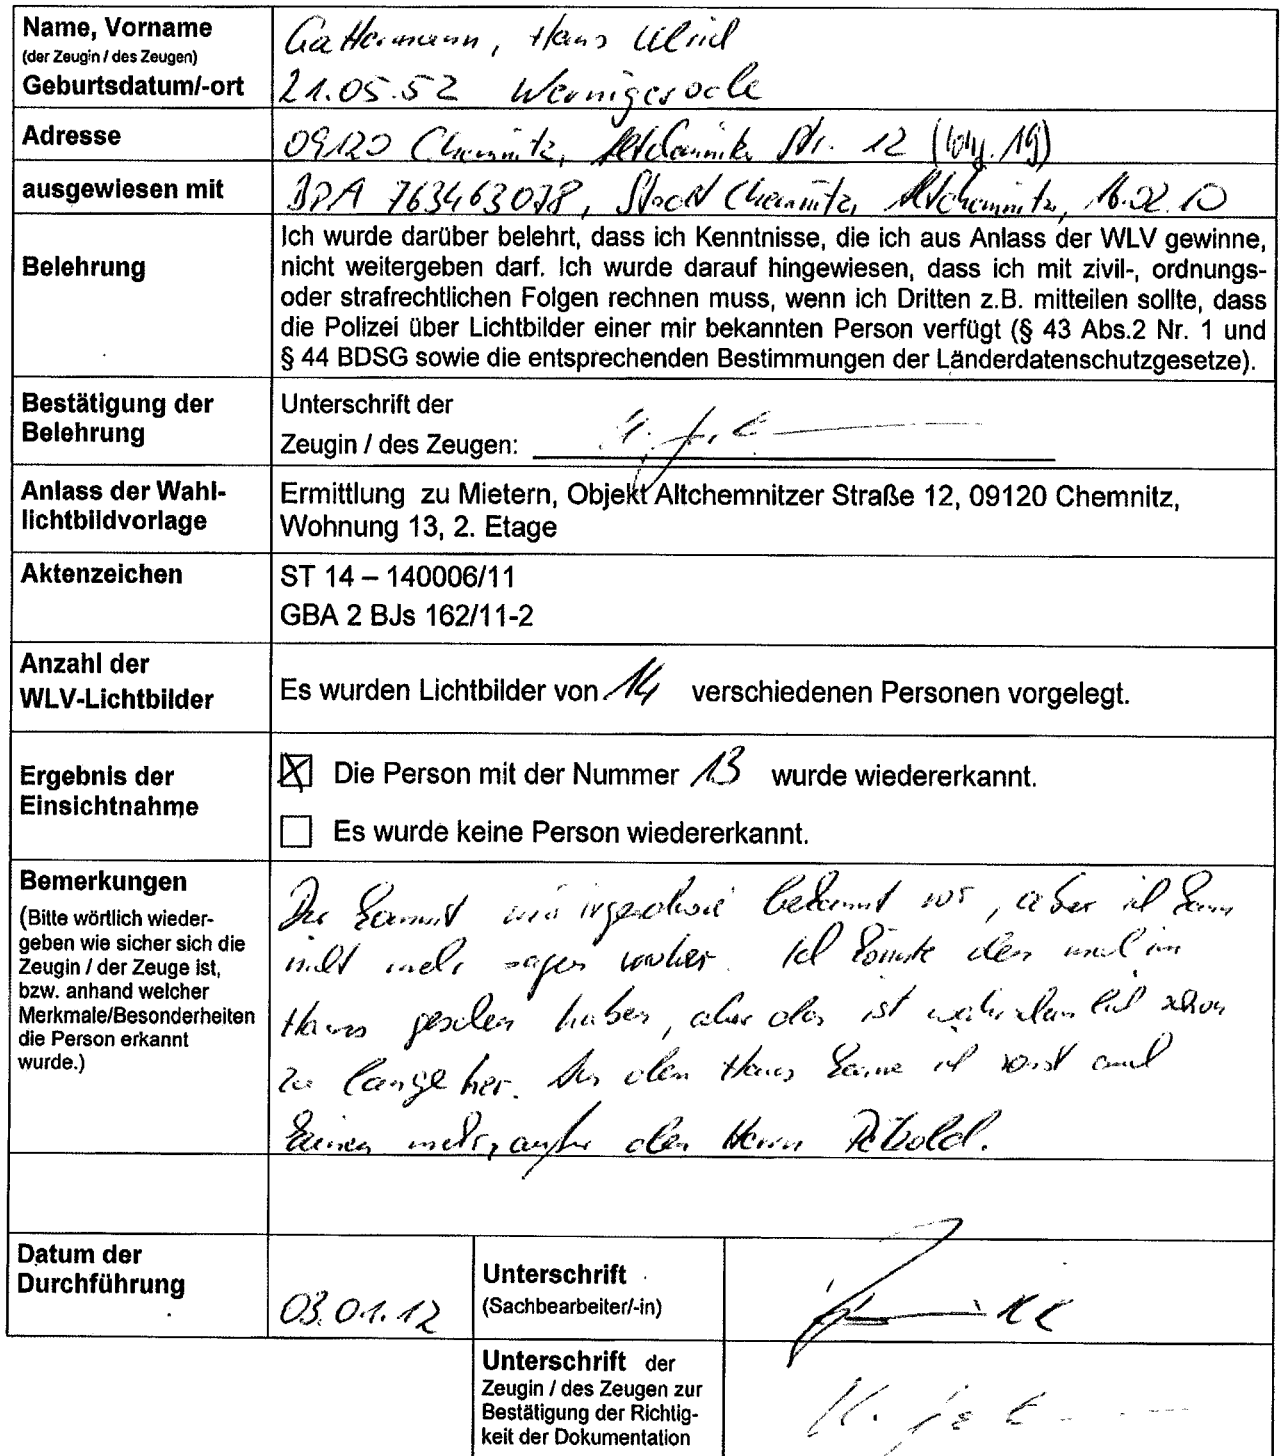 Name, Vorname
(der Zeugin / des Zeugen)
Geburtsdatum/-ort
Gattermann, Hans Ulrich
21.05.52 Wernigerode
Adresse
09120 Chemnitz, Altchemnitzer Str. 12 (Whg. 19)
ausgewiesen mit
BPA 763463078, Stadt Chemnitz, Altchemnitz, 16.02.10
Belehrung
Ich wurde darüber belehrt, dass ich Kenntnisse, die ich aus Anlass der WLV gewinne,
nicht weitergeben darf. Ich wurde darauf hingewiesen, dass ich mit zivil-, ordnungs-
oder strafrechtlichen Folgen rechnen muss, wenn ich Dritten z.B. mitteilen sollte, dass
die Polizei über Lichtbilder einer mir bekannten Person verfügt (§ 43 Abs.2 Nr. 1 und
§ 44 BDSG sowie die entsprechenden Bestimmungen der Länderdatenschutzgesetze).
Bestätigung der
Belehrung
Unterschrift der
Zeugin / des Zeugen:
Anlass der Wahl-
lichtbildvorlage
Ermittlung zu Mietern, Objekt Altchemnitzer Straße 12, 09120 Chemnitz,
Wohnung 13, 2. Etage
Aktenzeichen
ST 14 – 140006/11
GBA 2 BJs 162/11-2
Anzahl der
WLV-Lichtbilder
Es wurden Lichtbilder von 14 verschiedenen Personen vorgelegt.
Ergebnis der
Einsichtnahme
Die Person mit der Nummer 13 wurde wiedererkannt.
Es wurde keine Person wiedererkannt.
Bemerkungen
(Bitte wörtlich wieder-
geben wie sicher sich die
Zeugin / der Zeuge ist,
bzw. anhand welcher
Merkmale/Besonderheiten
die Person erkannt
wurde.)
Der kommt mir irgendwie bekannt vor, aber ich kann
nicht mehr sagen woher. Ich könnte den mal im
Haus gesehen haben, aber das ist wahrscheinlich schon
zu lange her. Aus dem Haus kenne ich sonst auch
keinen mehr, außer den Herrn Petzold.
Datum der
Durchführung
03.01.12
Unterschrift
(Sachbearbeiter/-in)
KK
Unterschrift der
Zeugin / des Zeugen zur
Bestätigung der Richtig-
keit der Dokumentation